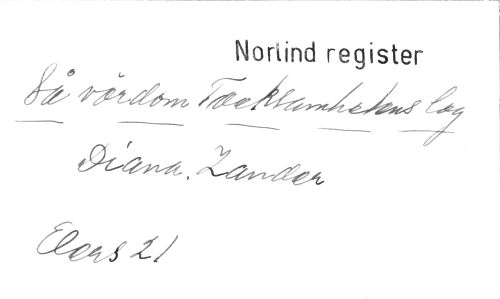 Norlind register
Så vördom Tacksamhetens lag
Diana. Zander
Elers 21